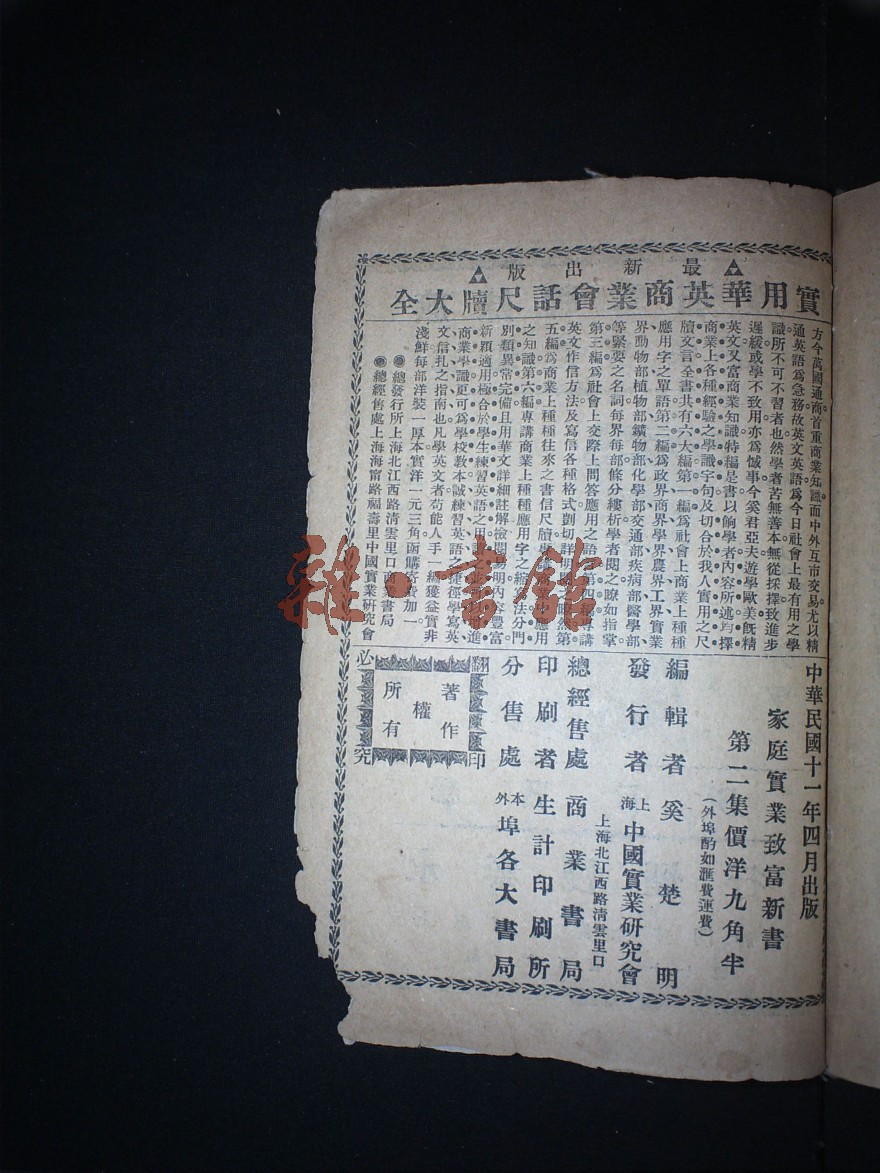 ▲最新出版▲
實用華英商業會話尺牘大全
方今萬國通商首重商業知識而中外互市交易尤以精
通英語爲急務故英文英語爲今日社會上最有用之學
識所不可不習者也然學者苦無善本無從採擇致進步
遲緩或學不致用亦爲憾事今奚君亞夫遊學歐美旣精
英文又富商業知識特編是書以餉學者內容所述均擇
商業上各種經驗之學識字句及切合於我人實用之尺
牘文言全書共有六大編第一編爲社會上商業上種種
應用字之單語第二編爲政界商界學界農界工界實業
界動物部植物部鑛物部化學部交通部疾病部醫學部
等緊要之名詞每界每部條分縷析學者閱之瞭如指掌
第三編爲社會上交際上問答應用之語第四編專講
英文作信方法及寫信各種格式剴切詳明 第
五編爲商業上種種往來之書信尺牘 應用
之知識第六編專講商業上種種應用字之縮 法分門
別類異常完備且用華文詳細註解檢閱易明內容豐富
新穎適用極合於學生練習英語之用 進
商業學識更可爲學校敎本誠練習英語之捷徑學寫英
文信扎之指南也凡學英文者苟能人手一編獲益實非
淺鮮每部洋裝一厚本實洋一元三角函購寄費加一
●總發行所上海北江西路清雲里口商業書局
●總經售處上海海甯路福壽里中國實業研究會
中華民國十一年四月出版
家庭實業致富新書
第二集價洋九角半
(外埠酌加滙費運費)
編輯者 奚楚明
發行者 上海中國實業研究會
上海北江西路清雲里口
總經售處 商業書局
印刷者 生計印刷所
分售處 本外埠各大書局
翻印必究
著作權所有
雜·書館